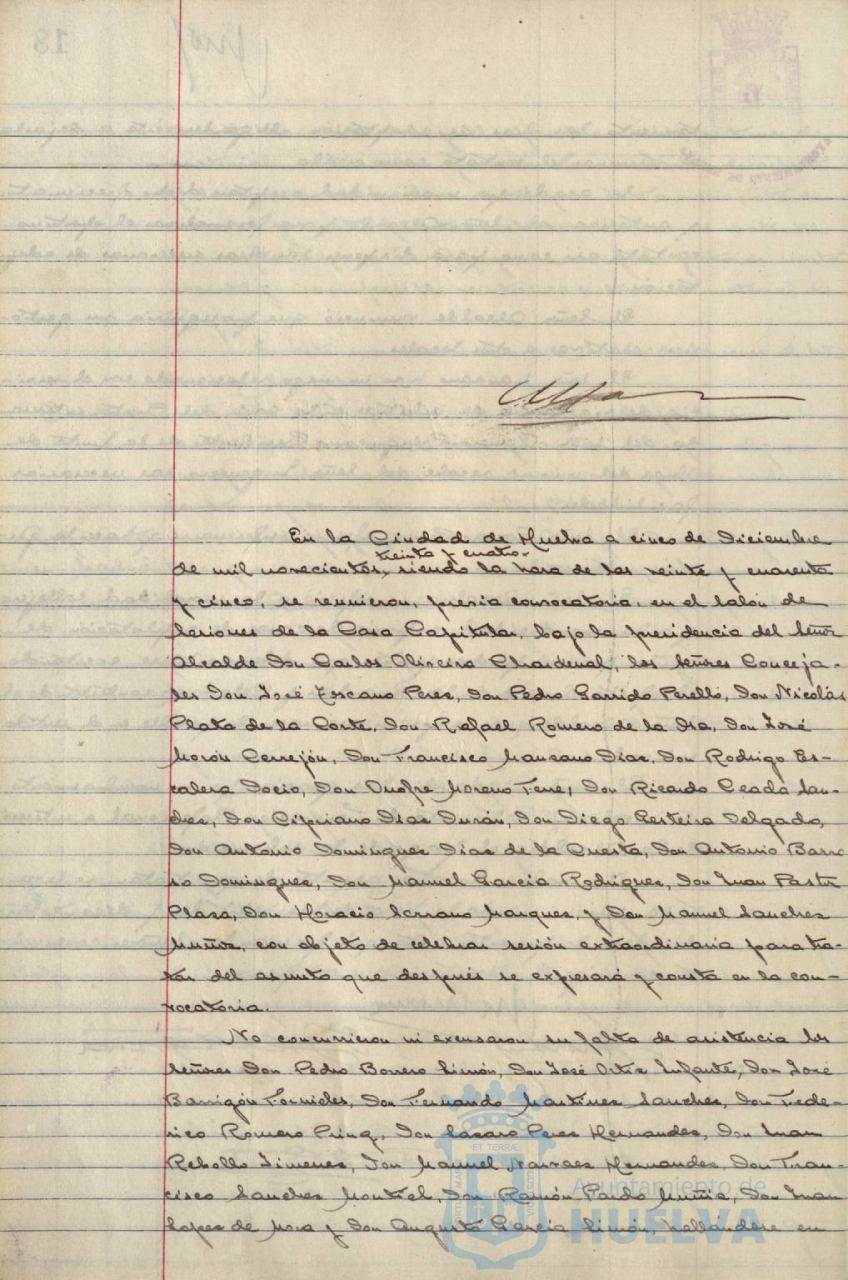 En la Ciudad de Huelva a cinco de Diciembre
treinta y cuatro
de mil novecientos, siendo la hora de las veinte y cuarenta
y cinco, se reunieron, previa convocatoria, en el salón de
Sesiones de la Casa Capitular, bajo la presidencia del Señor
Alcalde Don Carlos Oliveira Chardenal, los Señores Conceja-
les Don José Toscano Perez, Don Pedro Garrido Perelló, Don Nicolás
Plata de la Corte, Don Rafael Romero de la Isa, Don José
Morón Cerrejón, Don Francisco Manzano Dias, Don Rodrigo Es-
calera Docio, Don Onofre Moreno Don Ricardo Ceada San-
ches, Don Cipriano Dias Durán, Don Diego Gesteira Delgado,
Don Antonio Domingues Dias de la Cuesta, Don Antonio Barro
so Domingues, Don Manuel García Rodrigues, Don Juan Pastor
Plaza, Don Horacio Serrano Marques, y Don Manuel Sanches
Muñoz, con objeto de celebrar sesión extraordinaria para tra-
tar del asunto que después se expresará y consta en la con-
vocatoria.
No concurrieron ni excusaron su falta de asistencia los
Señores Don Pedro Borrero Limón, Don José Ortiz Infante, Don José
Barrigón Fornieles, Don Fernando Martines Sanches, Don Fede-
rico Romero Don Lázaro Peres Hernandes, Don Juan
Rebollo Jimenes, Don Manuel Narvaes Hernandes, Don Fran-
cisco Sanches Montiel, Don Ramón Pardo Muñiz, Don Juan
Lopes de Mora y Don Augusto García Limón, hallandose en
Ayuntamiento de
HUELVA